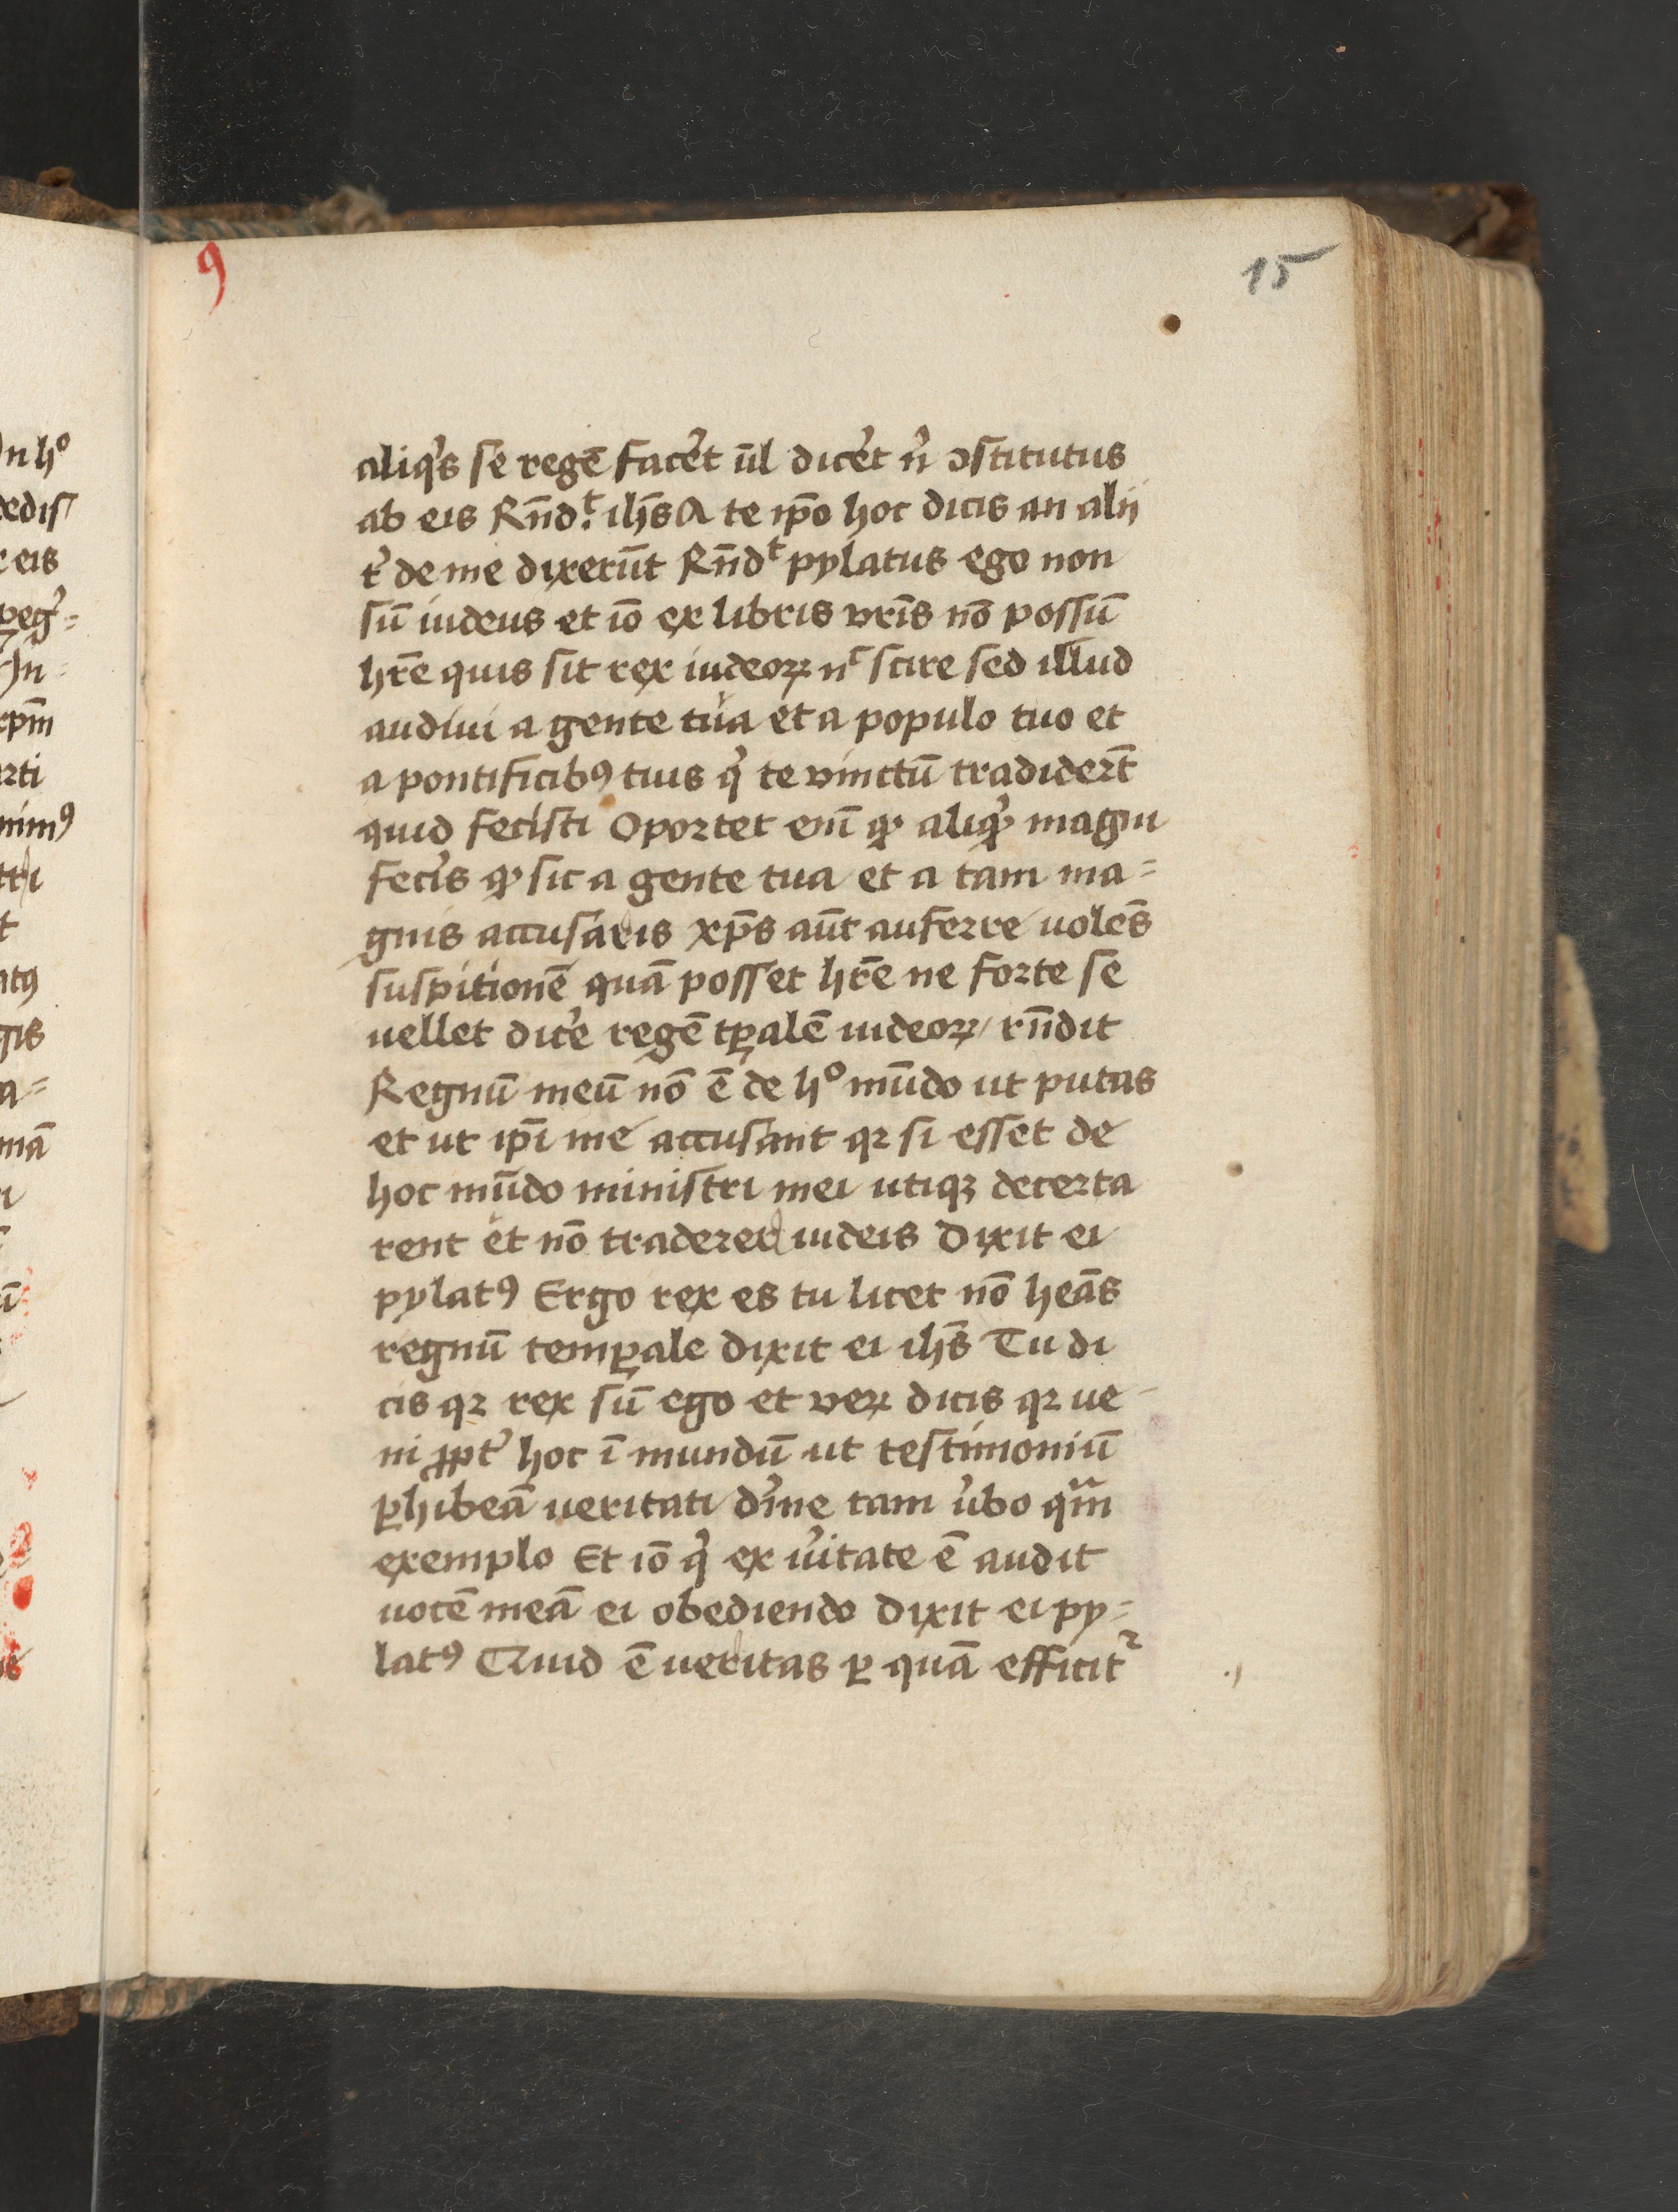 9
15
aliqͥs se regē facet̾ ūl dicet̾ n̾ ꝯstitutus
ab eis Rn̄dͭ. ih̄s A te ip̄o hoc dicis an alij
t̾ de me dixerūt Rn̄dͭ pylatus ego non
sū iudeus et iō ex libris vr̄is nō possū
hr̄e quis sit rex iudeoꝝ nͨ scire sed illud
audiui a gente tua et a populo tuo et
a pontificibꝰ tuis qͥ te vinctū tradider̄t
quid fecisti Oportet eni̅ ꝙ aliqͥ magni
fecis̾ ꝙ sic a gente tua et a tam ma=
gnis accusaris xp̄s aūt auferre uolēs
suspitionē quā posset hr̄e ne forte se
uellet dice̾ regē tꝑalē iudeoꝝ / rn̄dit
Regnū meū nō ē de hͦ mūdo ut putas
et ut ip̄i me accusant qꝛ si esset de
hoc mūdo ministri mei utiqꝫ decerta
rent et nō traderer iudeis Dixit ei
pylatꝰ Ergo rex es tu licet nō heās
regnū temꝑale Dixit ei ih̄s Tu di
cis qꝛ rex sū ego et veꝝ dicis qꝛ ue
ni ꝓpt̾ hoc ī mundū ut testimoniū
ꝑhibeā ueritati d̾ine tam u̾bo qm̄
exemplo Et iō qͥ ex u̾itate ē audit
uocē meā ei obediendo Dixit ei py=
latꝰ Quid ē ueritas ꝑ quā efficitᷣ
n hͦ
dedis
eis
peg̾=
Jn=
xpm̄